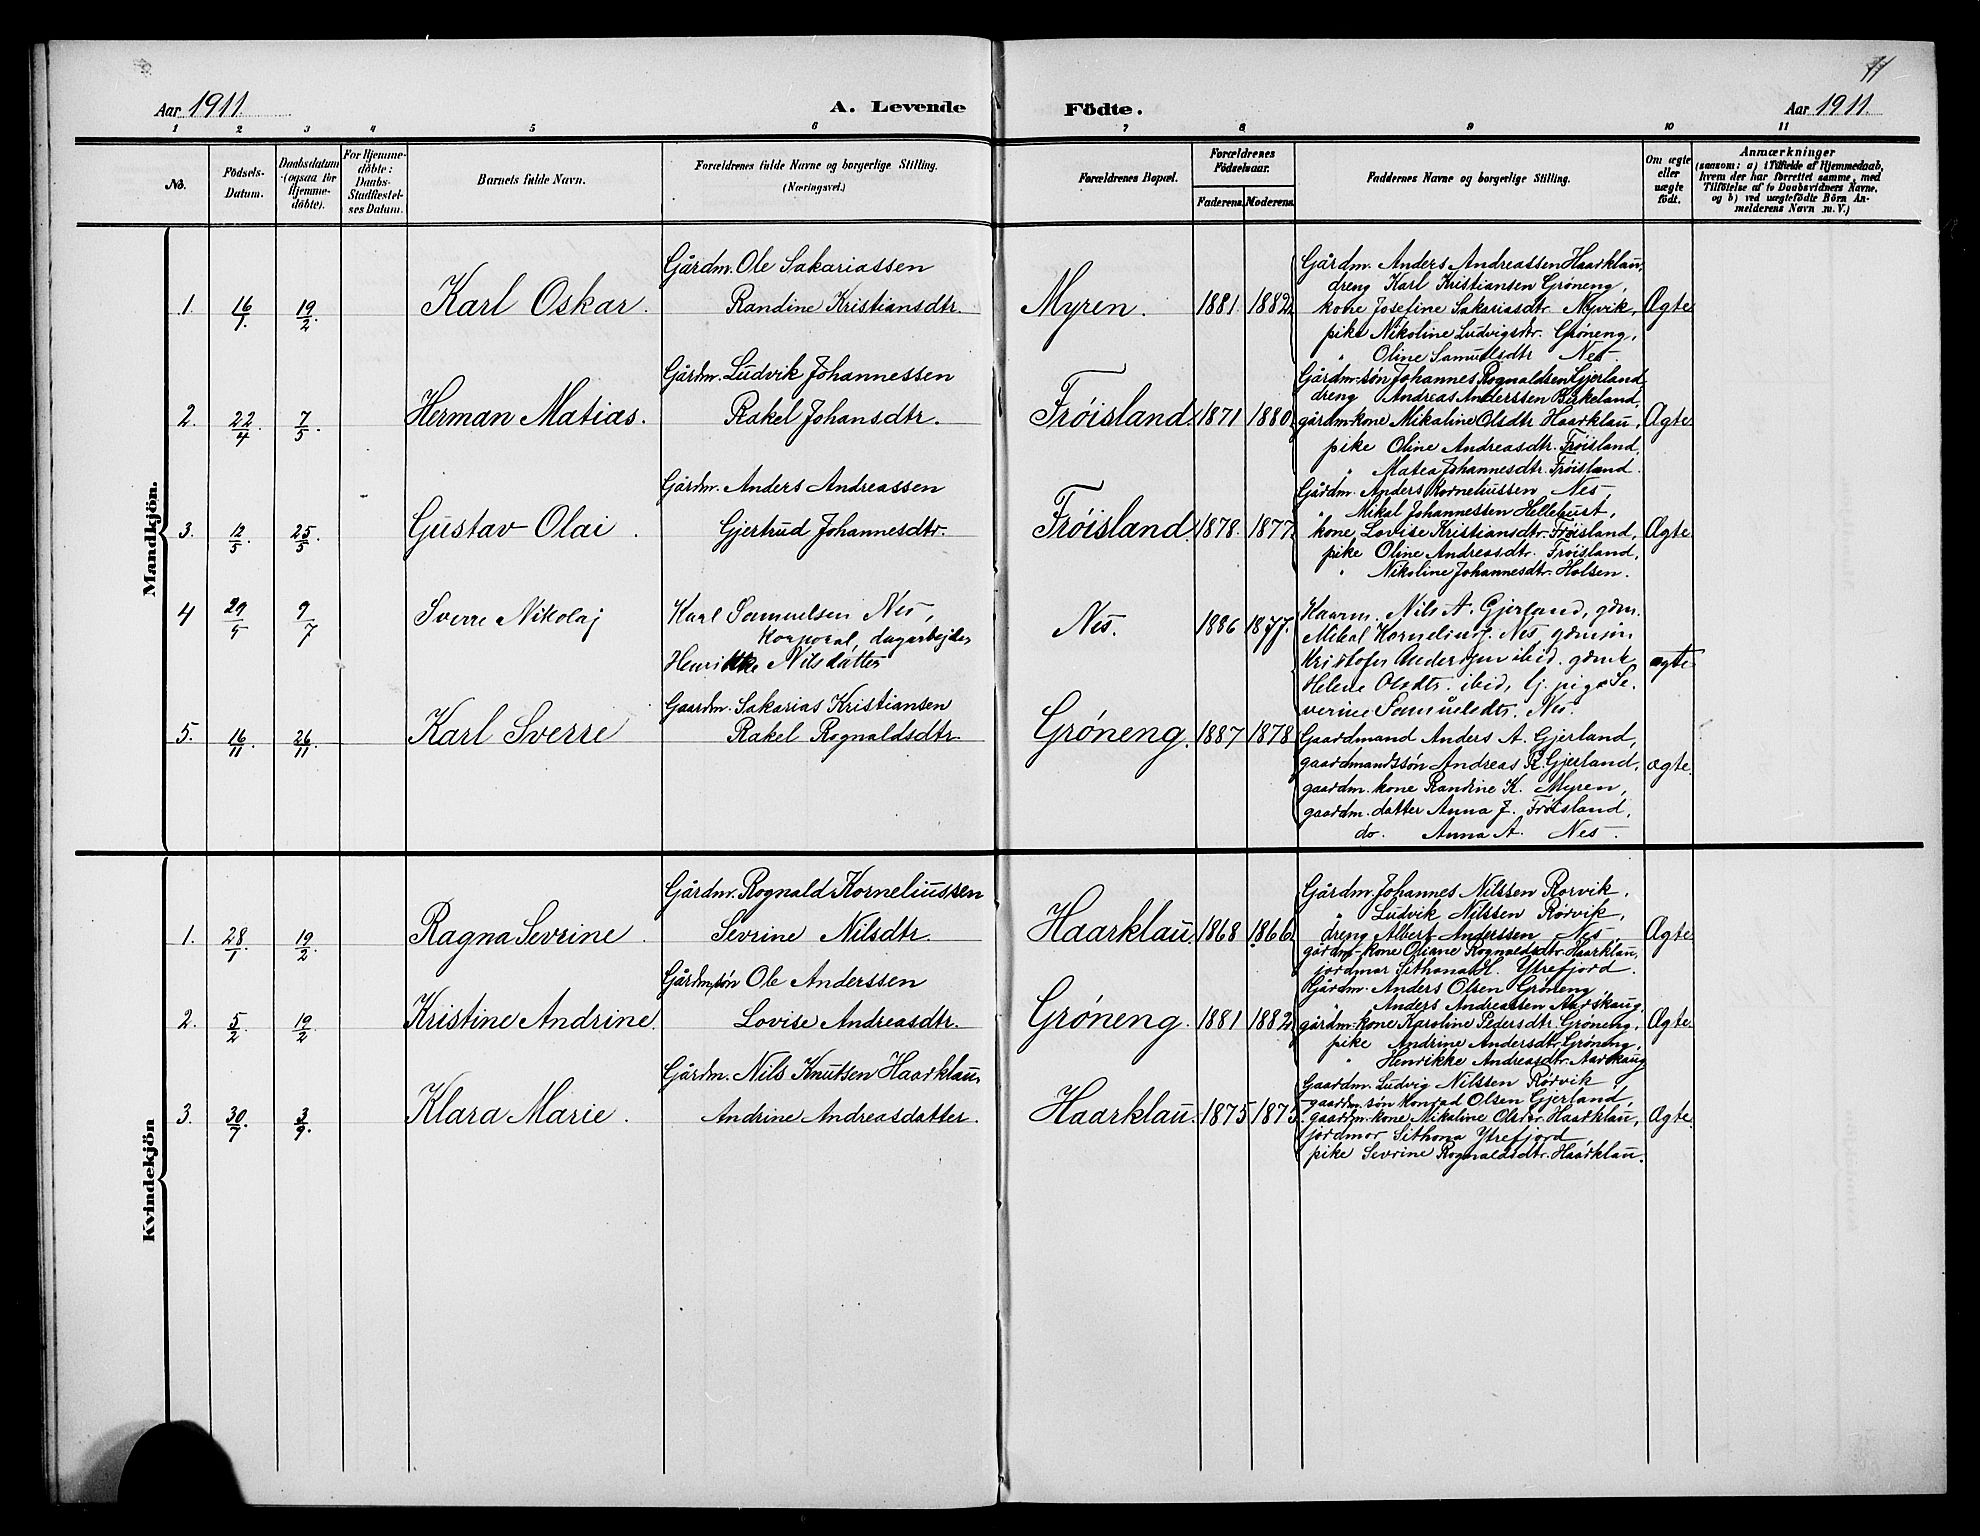 Aar 1911.
A. Levende
Födte.
11
Aar 1911.
1 2 3 4 5 6 7 8 9 10 11
No.
Födsels-
Datum.
Daabsdatum
(ogsaa for
Hjemme-
döbte).
For Hjemme-
döbte:
Daabs-
Stadfæstel-
ses Datum.
Barnets fulde Navn.
Forældrenes fulde Navne og borgerlige Stilling.
(Næringsvei.)
Forældrenes Bopæl.
Forældrenes
Födselsaar.
Faderens. Moderens.
Faddernes Navne og borgerlige Stilling.
Om ægte
eller
uægte
födt.
Anmærkninger
(saasom: a) i Tilfælde af Hjemmedaab,
hvem der har forrettet samme, med
Tilföielse af to Daabsvidners Navne,
og b) ved uægtefödte Börn An-
melderens Navn m. V.)
Mandkjön.
1. 16/1. 19/2. Karl Oskar.
Gårdm. Ole Sakariassen
Randine Kristiansdtr.
Myren. 1881. 1882.
Gårdm. Anders Andreassen Haarklau,
dreng Karl Kristiansen Grøneng,
kone Josefine Sakariasdtr. Myvik,
pike Nikoline Ludvigsdtr. Grøneng,
" Oline Samuelsdtr Nes.
Ægte
2. 22/4. 7/5. Herman Matias.
Gårdm. Ludvik Johannessen
Rakel Johansdtr.
Frøisland. 1871 1880.
Gårdm.-søn Johannes Rognaldsen Gjerland,
dreng Andreas Anderssen Birkeland,
gårdm-kone Mikaline Olsdtr. Haarklau,
pike Oline Andreasdtr. Frøisland,
" Matea Johannesdtr. Frøisland.
Ægte
3. 12/5. 25/5. Gustav Olai.
Gårdm. Anders Andreassen
Gjertrud Johannesdtr.
Frøisland. 1878. 1877.
Gårdm. Anders Korneliussen Nes,
" Mikal Johannessen Hellebust,
kone, Lovise Kristiansdtr. Frøisland,
pike Oline Andreasdtr. Frøisland,
" Nikoline Johannesdtr. Holsen.
Ægte
4 29/5 9/7 Sverre Nikolaj
Karl Samuelsen Nes,
Korporal, dagarbejder
Henrikke Nilsdatter
Nes. 1886 1877.
Nils A. Gjerland, gdm.
Mikal Kornelius. Nes, gdmsøn
Kristofer Andersen ibid. gdmk
Helene Olsdtr. ibid, lj. pige Se-
verine Samuelsdtr. Nes.
ægte
5. 16/11. 26/11. Karl Sverre
Gaardm. Sakarias Kristiansen
Rakel Rognaldsdtr.
Grøneng. 1887 1878
Gaardmand Anders A. Gjerland,
gaardmandssøn Andreas R. Gjerland,
gaardm. kone Randine K. Myren,
gaardm. datter Anna J. Frøisland,
do. Anna A. Nes.
ægte.
Kvindekjön
1. 28/1 19/2 Ragna Sevrine.
Gårdm. Rognald Korneliussen
Sevrine Nilsdtr.
Haarklau. 1868 1866.
Gårdm. Johannes Nilssen Rørvik,
" Ludvik Nilssen Rørvik,
dreng Albert Anderssen Nes
gårdm-kone Oliane Rognaldsdtr. Haarklau,
jordmor Sithona H. Ytrefjord.
Ægte
2. 5/2 19/2 Kristine Andrine.
Gårdm.søn Ole Anderssen
Lovise Andreasdtr.
Grøneng. 1881 1882.
Gårdm. Anders Olsen Grøneng
" Anders Andreassen Aarskaug,
gårdm-kone Karoline Pedersdtr. Grøneng,
pike Andrine Andersdtr. Grøneng,
" Henrikke Andreasdtr. Aarskaug
Ægte
3. 30/7 3/9. Klara Marie.
Gårdm. Nils Knutsen Haarklau,
Andrine Andreasdatter.
Haarklau. 1875 1875.
Gaardm. Ludvig Nilssen Rørvik,
gaardm. søn Konrad Olsen Gjerland,
gaardm-kone Mikaline Olsdtr. Haarklau,
jordmor Sithona Ytrefjord
pike Sevrine Rognaldsdtr. Haarklau.
Ægte.